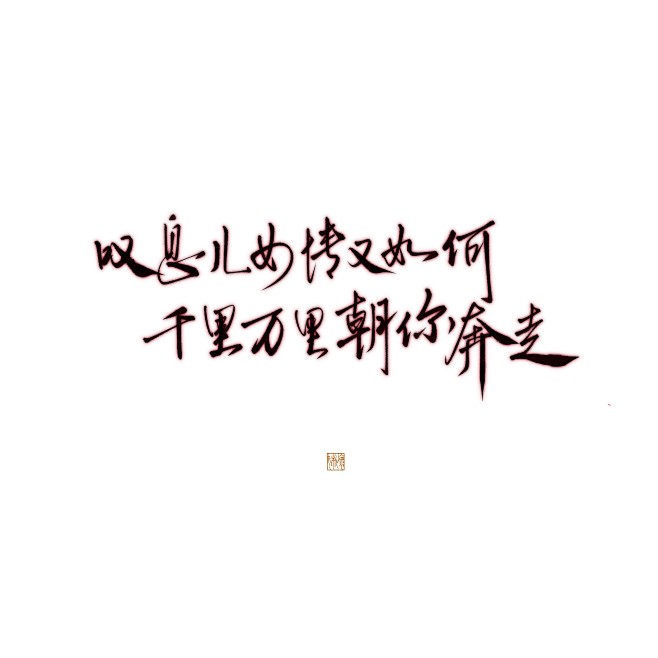 叹息儿女情又如何
千里万里朝你奔走